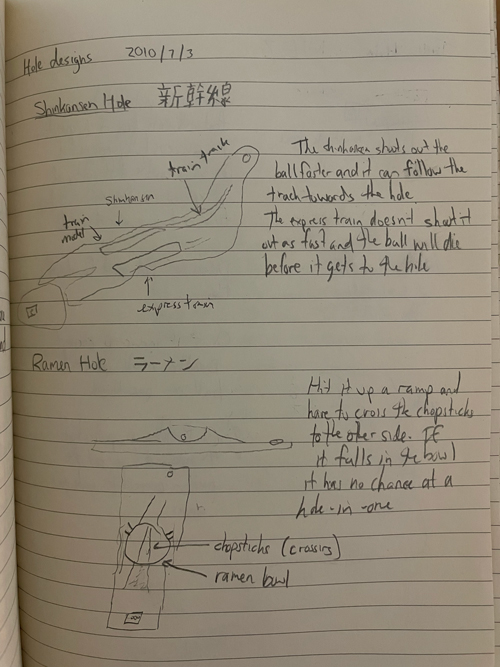 Hole designs 2010/7/3
Shinkansen Hole 新幹線
train track
Shinkansen
train model
express train
The shinkansen shoots out the
ball faster and it can follow the
track towards the hole.
The express train doesn't shoot it
out as fast and the ball will die
before it gets to the hole
Ramen Hole ラーメン
Hit it up a ramp and
have to cross the chopsticks
to the other side. If
it falls in the bowl
it has no chance at a
hole-in-one
chopsticks (crossing)
ramen bowl